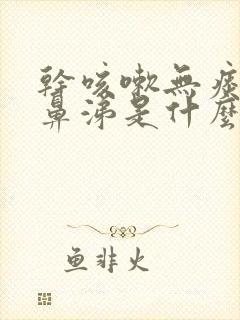 幹咳嗽無痰
鼻涕是什麼
鱼非火